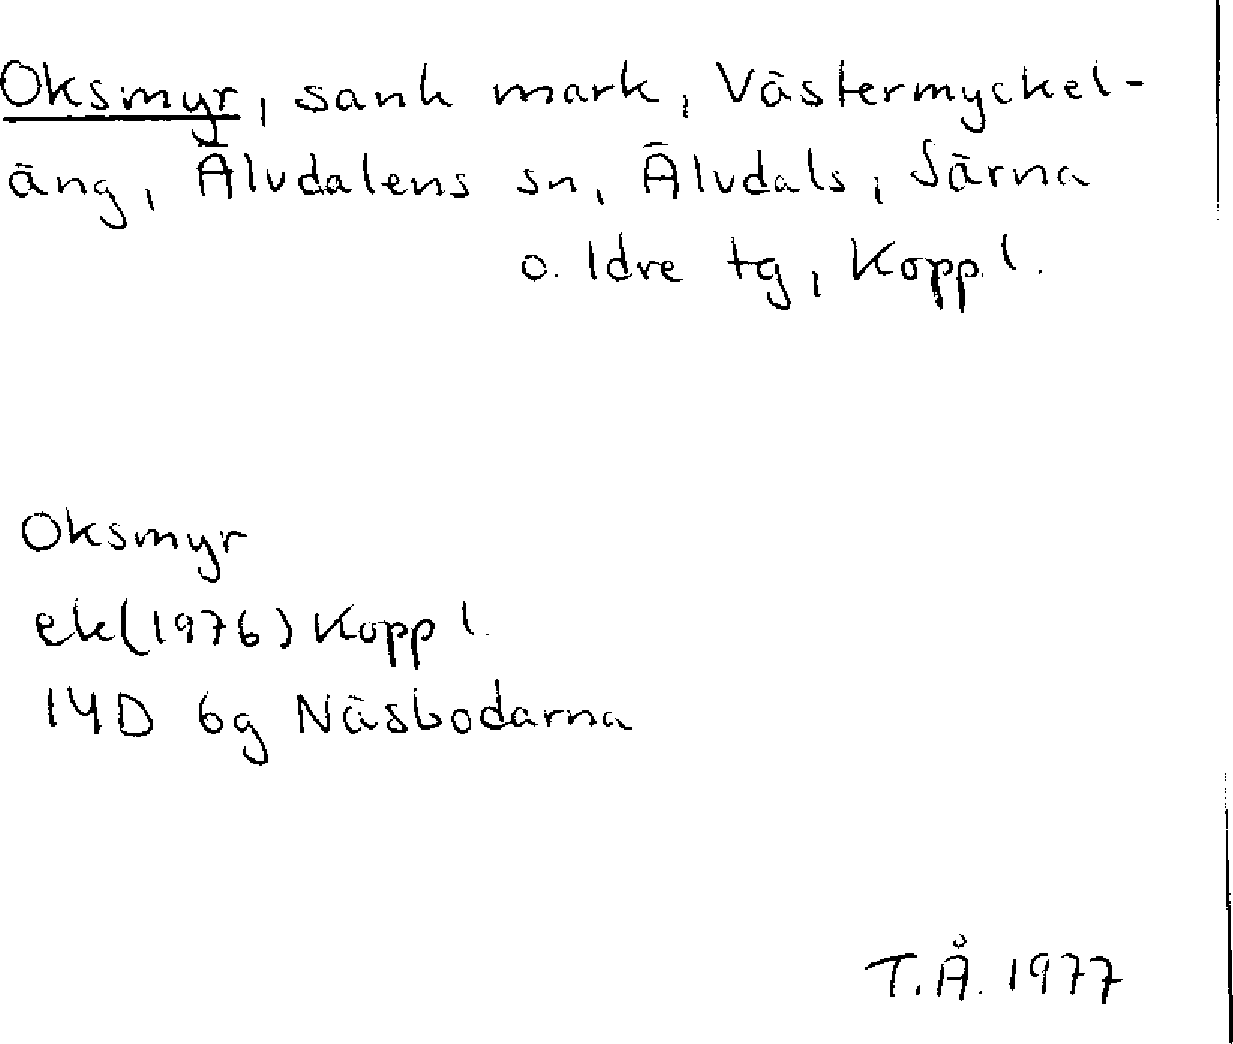 Oksmyr, sank mark, Västermyckel-
äng, Älvdalens sn, Älvdals, Särna
o. Idre tg, Kopp. l.
Oksmyr
ek(1976) Kopp l.
14D 6g Näsbodarna
T.Å. 1977